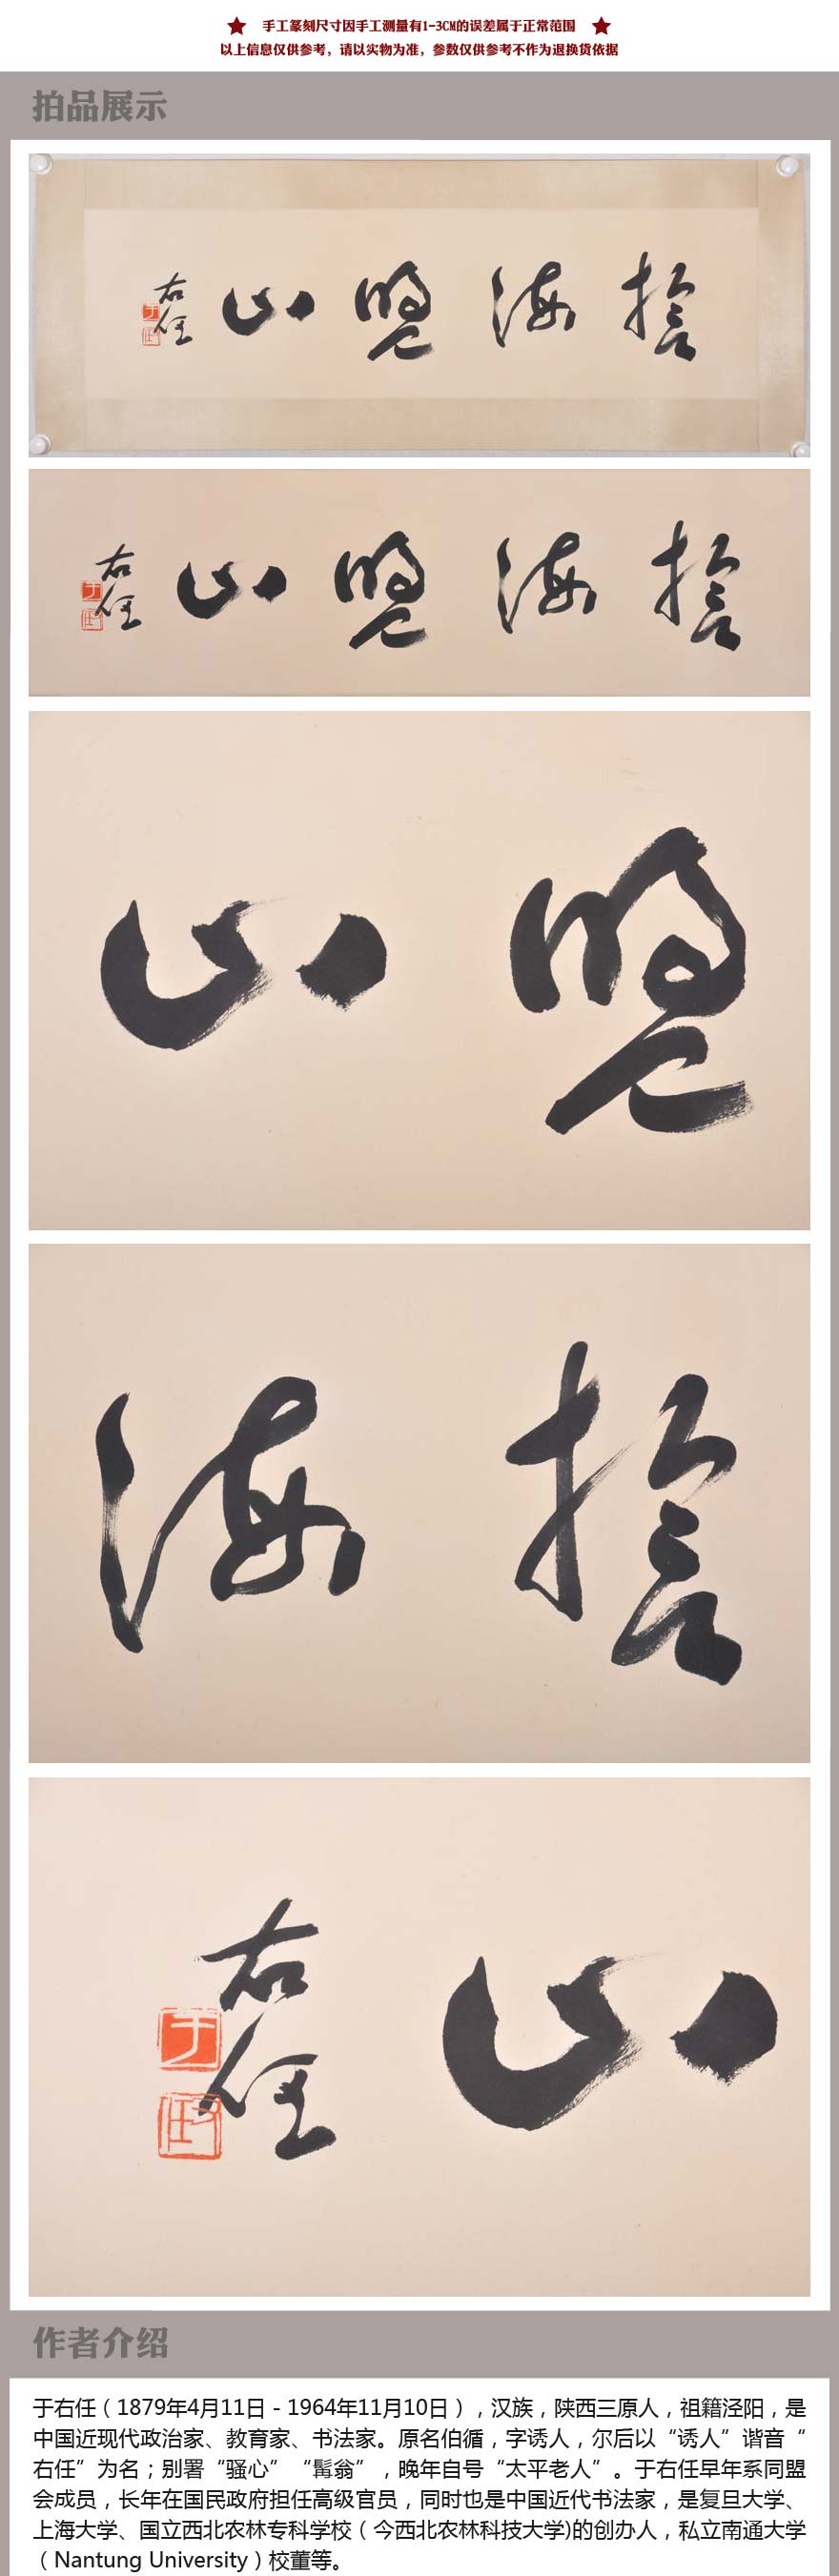 手工篆刻尺寸因手工测量有1-3CM的误差属于正常范围
以上信息仅供参考，请以实物为准，参数仅供参考不作为退换货依据
拍品展示
誓海盟山
右任
誓海盟山
右任
盟山
誓海
山
右任
于
右任
作者介绍
于右任（1879年4月11日－1964年11月10日），汉族，陕西三原人，祖籍泾阳，是
中国近现代政治家、教育家、书法家。原名伯循，字诱人，尔后以“诱人”谐音“
右任”为名；别署“骚心”“髯翁”，晚年自号“太平老人”。于右任早年系同盟
会成员，长年在国民政府担任高级官员，同时也是中国近代书法家，是复旦大学、
上海大学、国立西北农林专科学校（今西北农林科技大学)的创办人，私立南通大学
（Nantung University）校董等。